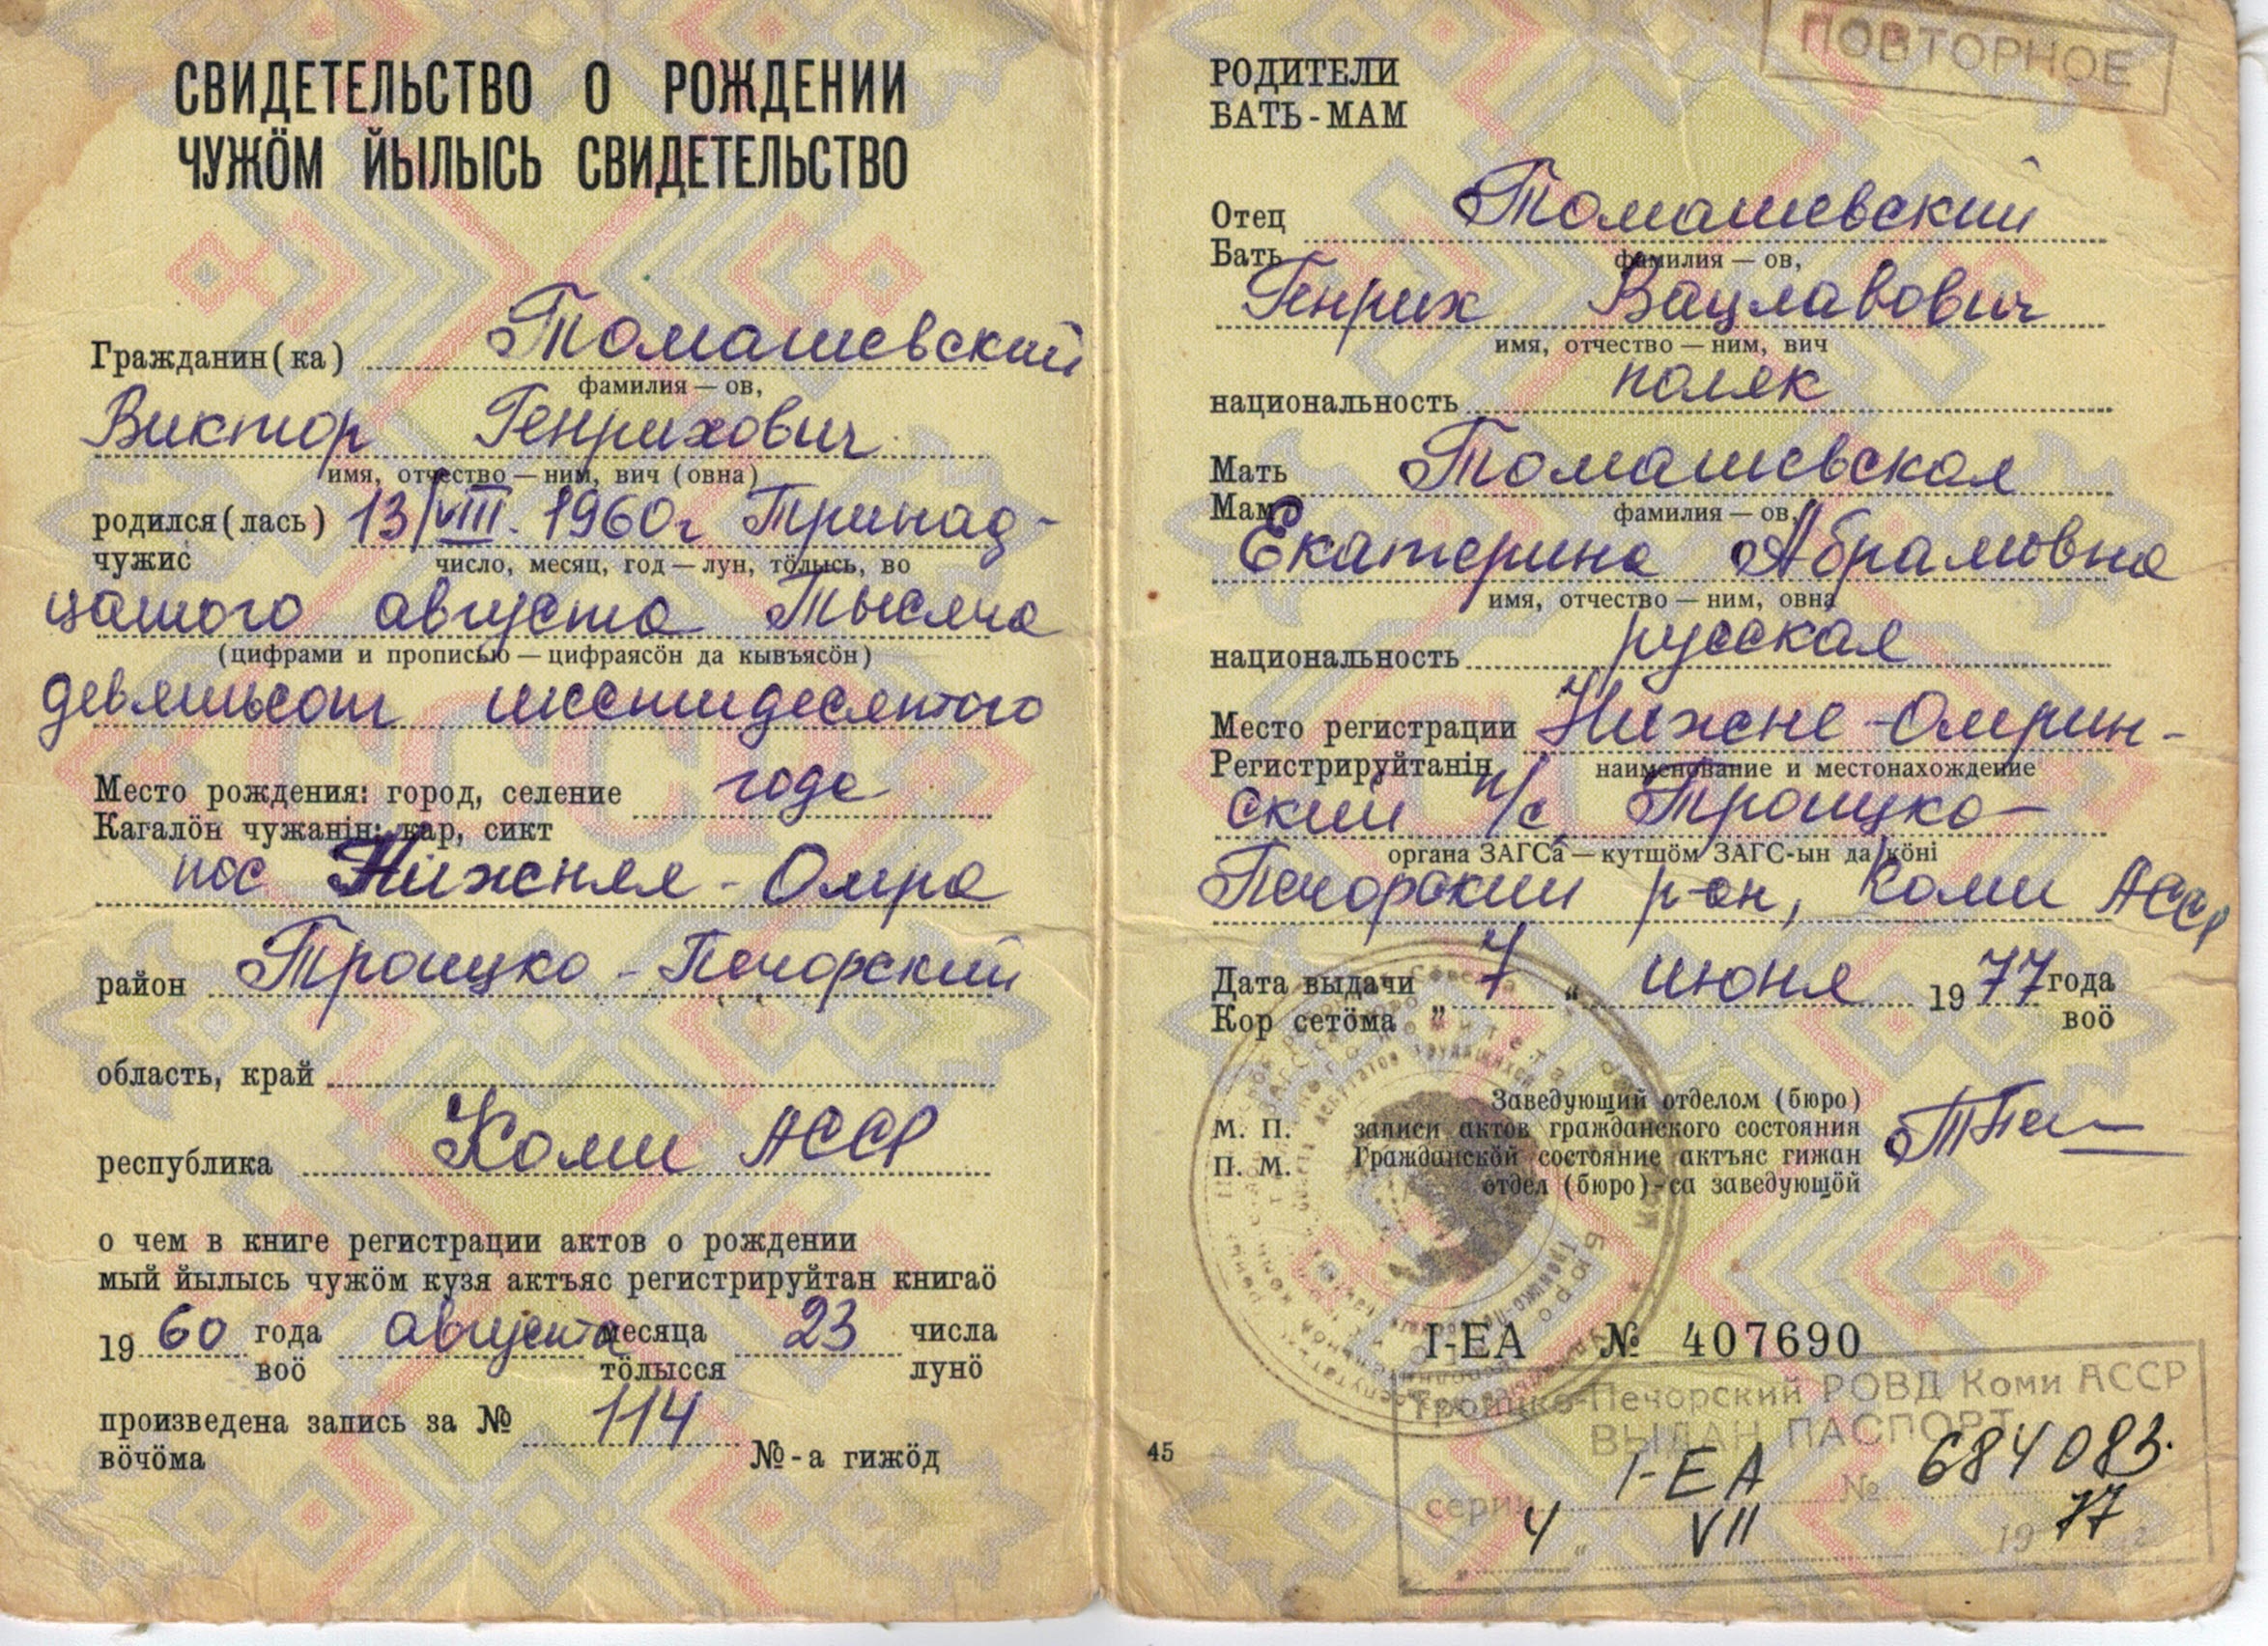 СВИДЕТЕЛЬСТВО О РОЖДЕНИИ
ЧУЖӦМ ЙЫЛЫСЬ СВИДЕТЕЛЬСТВО
Гражданин(ка) Томашевский
фамилия — ов,
Виктор Генрихович
имя, отчество — ним, вич (овна)
родился(лась) 13/VIII. 1960г Тринад-
чужис число, месяц, год — лун, тӧлысь, во
цатого августа Тысяча
(цифрами и прописью — цифраясӧн да кывъясӧн)
девятьсот шестидесятого
Место рождения: город, селение года
Кагалӧн чужанiн: кар, сикт
пос Нижняя - Омра
район Троицко - Печорский
область, край
республика Коми АССР
о чем в книге регистрации актов о рождении
мый йылысь чужӧм кузя актъяс регистрируйтан книгаӧ
19 60 года августа месяца 23 числа
воӧ тӧлысся лунӧ
произведена запись за № 114
вӧчӧма №-а гижӧд
ПОВТОРНОЕ
РОДИТЕЛИ
БАТЬ-МАМ
Отец Томашевский
Бать фамилия — ов,
Генрих Вацлавович
имя, отчество — ним, вич
национальность поляк
Мать Томашевская
Мам фамилия — ов,
Екатерина Абрамовна
имя, отчество — ним, овна
национальность русская
Место регистрации Нижне-Омрин-
Регистрируйтанiн наименование и местонахождение
ский п/с Троицко-
органа ЗАГСа — кутшӧм ЗАГС-ын да кӧнi
Печорский р-он, Коми АССР
Дата выдачи 7 " июня 1977 года
Кор сетӧма " воӧ
Заведующий отделом (бюро)
М. П. записи актов гражданского состояния
П. М. Гражданскӧй состояние актъяс гижан
отдел (бюро)-са заведующӧй
I-ЕА № 407690
Троицко-Печорский РОВД Коми АССР
ВЫДАН ПАСПОРТ
серии I-ЕА № 684083.
" 4 " VII 1977 г.
45